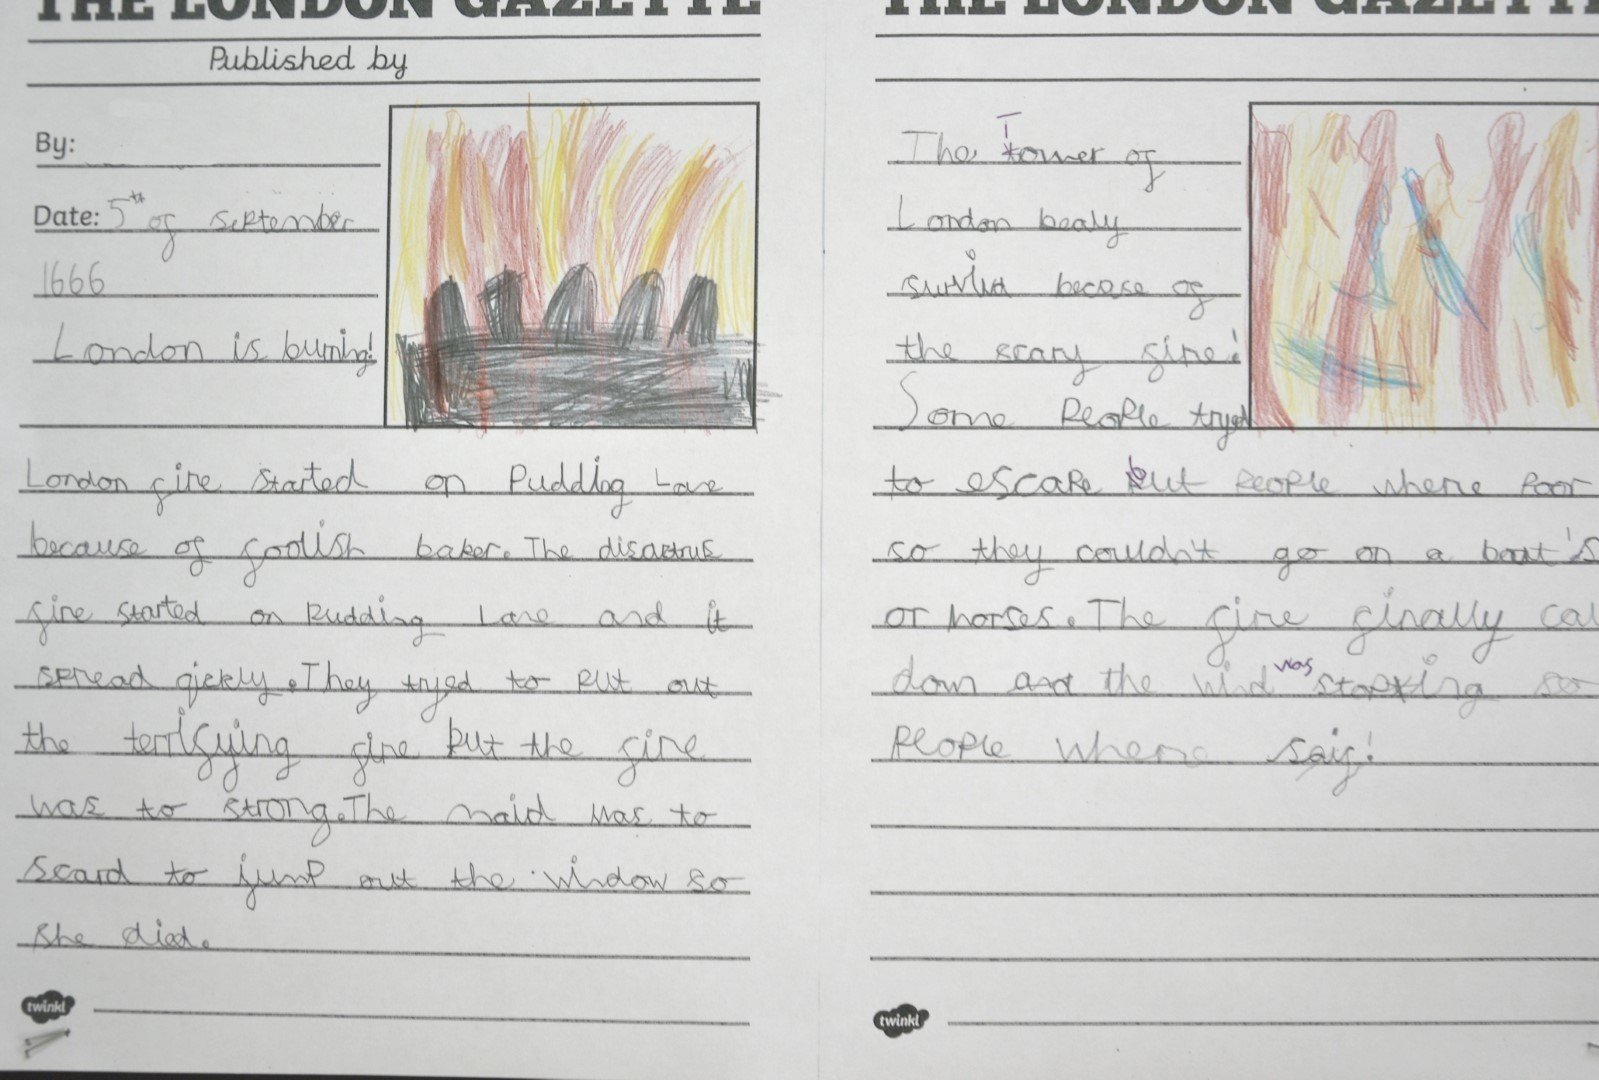 THE LONDON GAZETTE
Published by
By:
Date: 5th of september
1666
London is burning!
London fire started on Pudding Lane
because of foolish baker. The disastrus
fire started on Pudding Lane and it
spread qickly. They tryed to put out
the terrifying fire but the fire
was to strong. The maid was to
scard to jump out the window so
she died.
twinkl
THE LONDON GAZETTE
The Tower of
London bealy
becose of
the scary fire!
Some People tryed
to escape but people where poor
so they couldn't go on a boat's
or horses. The fire finally cal
down and the wind was stopping so
People where saif!
twinkl